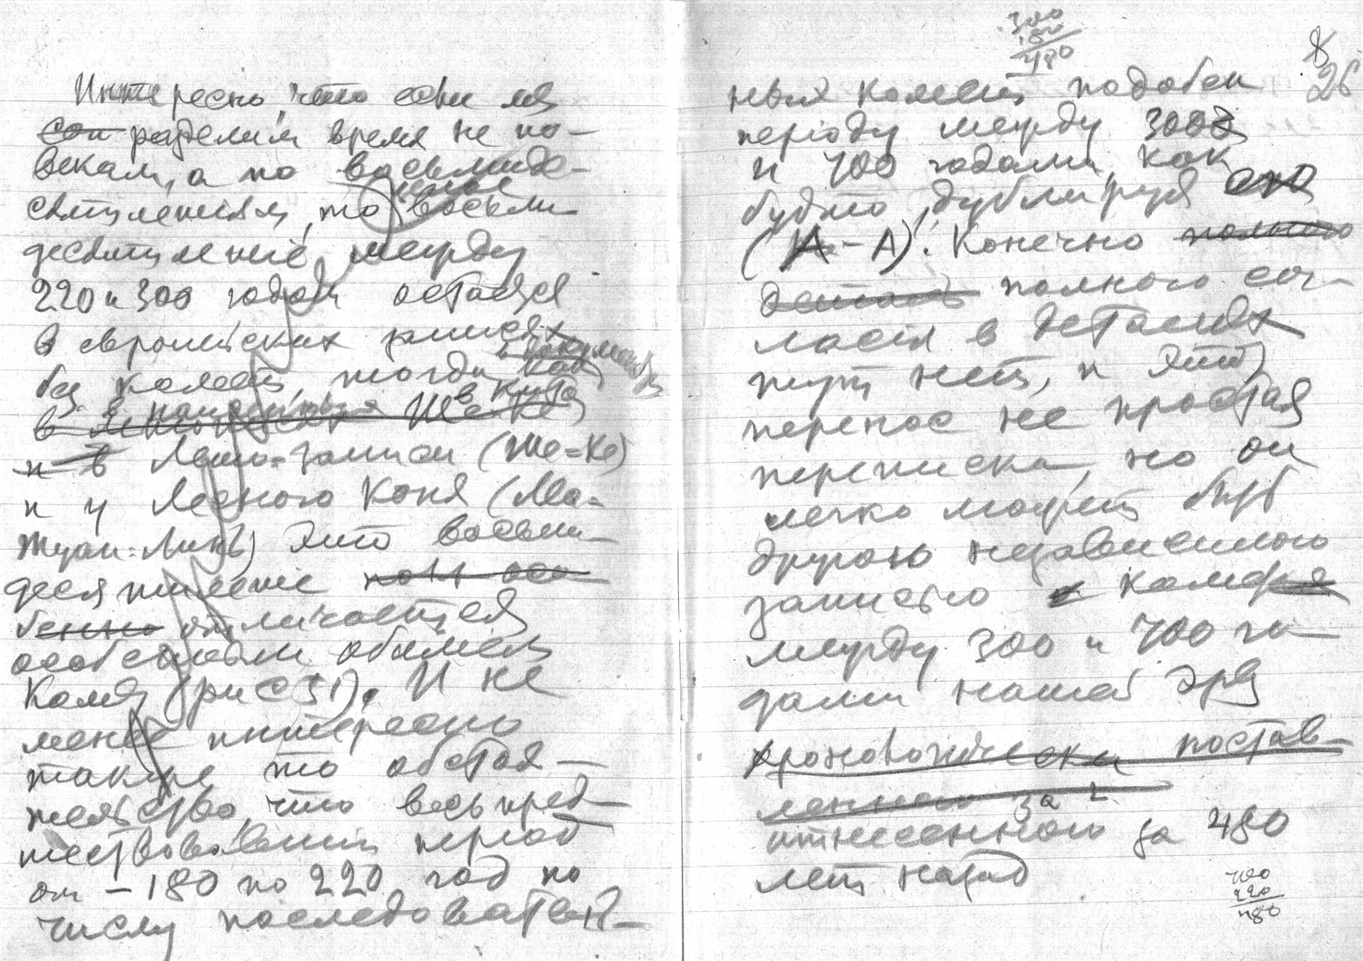 Интересно, что если мы
разделим время не по
векам, а по восьмиде-
сятилетиям, то восьми-
десятилетие между
220 и 300 годом остался
в европейских
без комет, тогда как
в
и в Лето-записи (Ше-Ке)
и у Леного Коня (Ма-
Туан-Линь) Это восьми-
десятилетие
бенно отличается
особенным обилием
Комет (рис 51). И не
менее интересно
также то обстоя-
тельство, что весь пред-
шествовавший период
от -180 по 220 год по
числу последователь-
300
180
480
8
26
ных комет подобен
периоду между 300
и 700 годами, как
будто дублируя его
(А-А). Конечно полного
деталь полного сог-
ласия в деталях
тут нет, и это
перенос не простая
переписка, но он
легко может быть
другою независимою
записью комет
между 300 и 700 го-
дами нашей эры
хронологически постав-
ленного
отнесенного за 480
лет назад
700
220
480